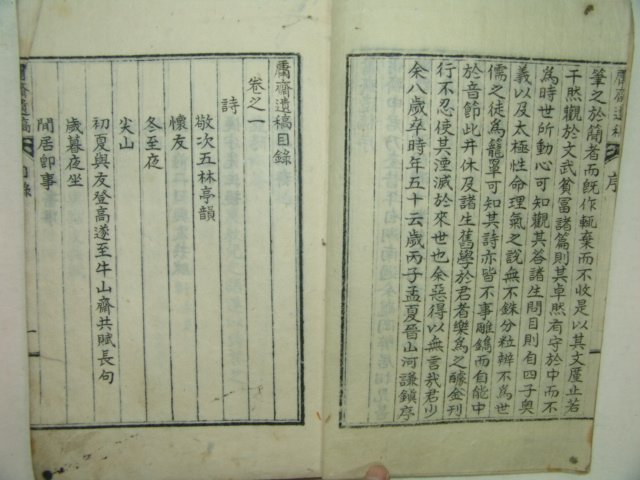 膺齋遺稿 序
筆之於簡者而旣作輒棄而不收是以其文廑止若
干然觀於文武貧富諸篇則其卓然有守於中而不
爲時世所動心可知觀其答諸生問目則自四子奧
義以及太極性命理氣之說無不銖分粒辨不爲世
儒之徒爲籠罩可知其詩亦皆不事雕鎪而自能中
於音節此幷休及諸生舊學於君者樂爲之醵金刊
行不忍使其湮滅於來世也余惡得以無言哉君少
余八歲卒時年五十云歲丙子孟夏晉山河謙鎭序
膺齋遺稿目錄
卷之一
詩
敬次五林亭韻
懷友
冬至夜
尖山
初夏與友登高遂至牛山齋共賦長句
歲暮夜坐
閒居卽事
膺齋遺稿 目錄 一